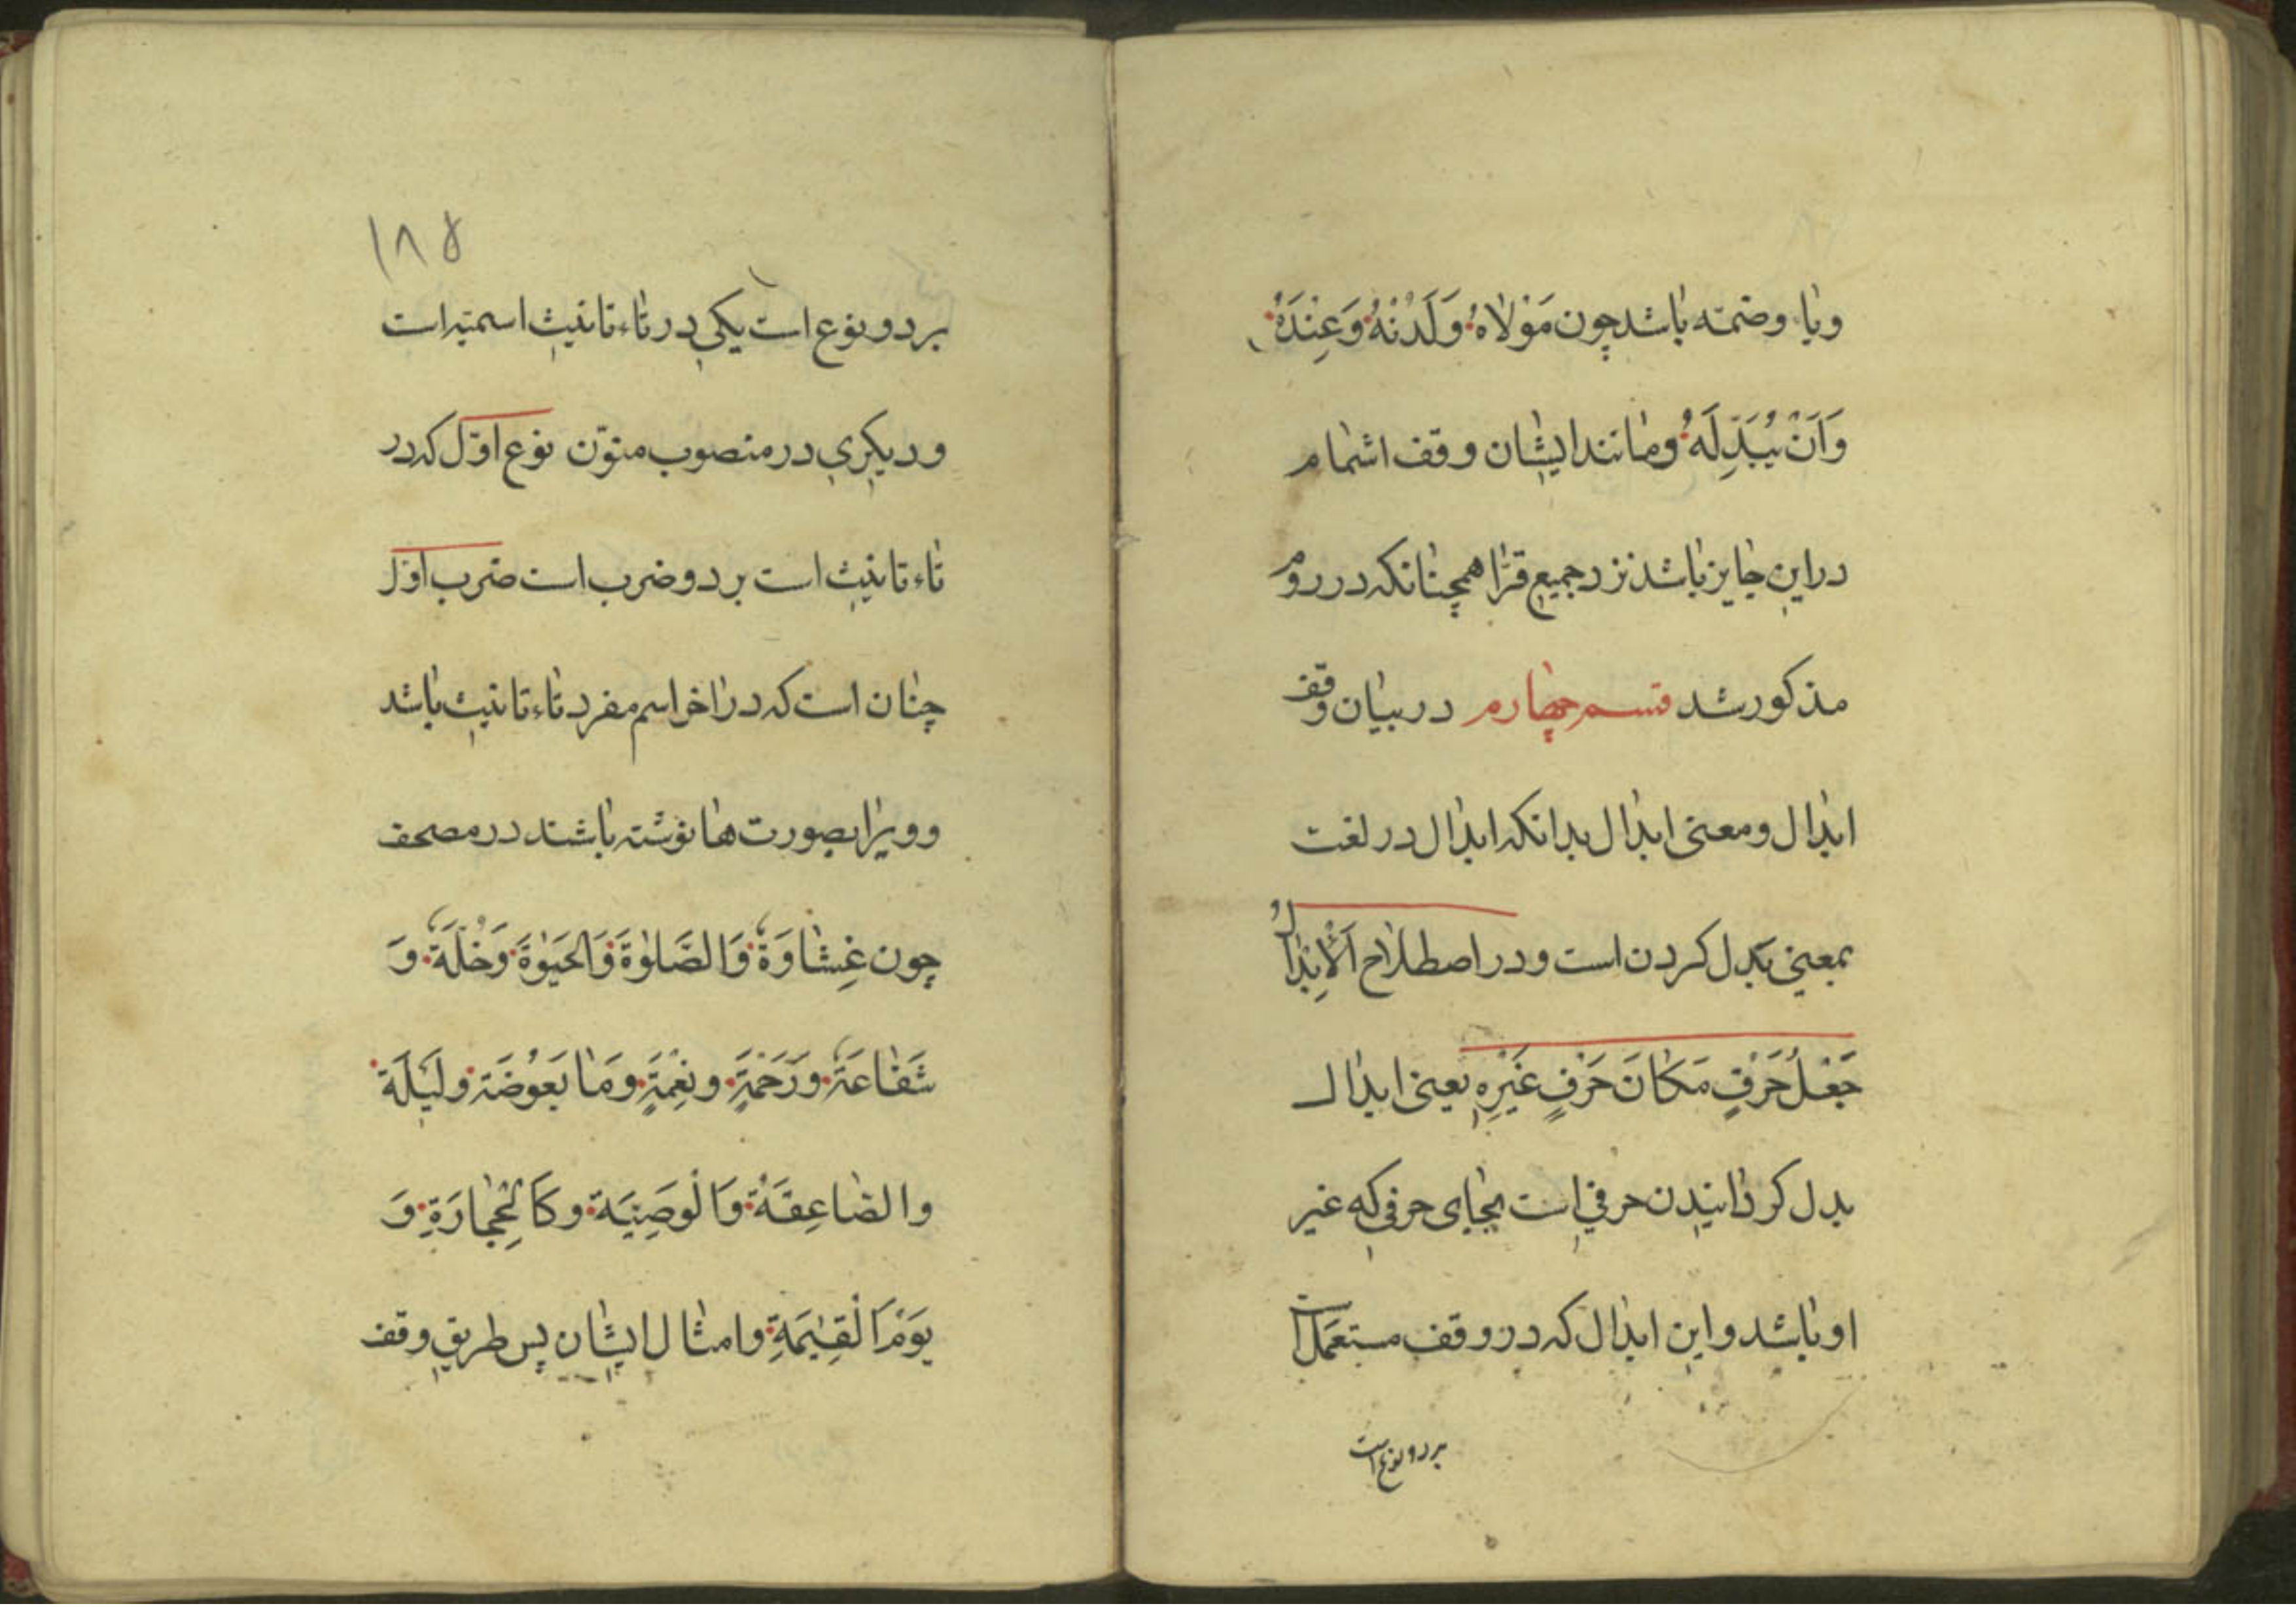 ویا وضمّه باشد چون مَوْلاهُ وَلَدُنْهُ وَعِنْدَهُ
وَاَنْ یُبَدِّلَهُ ومانند ایشان وقف اشمام
دراین جایز باشد نزد جمیع قرّا همچنانکه در روم
مذکور شد قسم چهارم در بیان وقف
ابدال ومعنی ابدال بدانکه ابدال در لغت
بمعنی بَدل کردن است ودر اصطلاح اَلْاِبْدالُ
جَعْلُ حَرْفٍ مَکانَ حَرْفٍ غَیْرِهِ یعنی ابدال
بدل کردانیدن حرفی است بجای حرفی که غیر
او باشد واین ابدال که در وقف مستعمَل است
بر دو نوع است
۱۸۵
بر دو نوع است یکی در تاء تانیث اسمیّه است
ودیکری در منصوب منوّن نوع اوّل که در
تاء تانیث است بر دو ضرب است ضرب اوّل
چنان است که در اخر اسم مفرد تاء تانیث باشد
وویرا بصورت ها نوشته باشند در مصحف
چون غِشاوَةٌ وَالصَّلٰوةَ وَالْحَیٰوةَ وَخُلَّةٌ وَ
شَفاعَةٌ ورَحْمَةٍ ونِعْمَةٍ ومَا بَعُوضَةً ولَیْلَةً
والصّاعِقَةُ وَالْوَصِیَّةُ وکَالْحِجارَةِ وَ
یَوْمَ الْقِیٰمَةِ وامثال ایشان پس طریق وقف